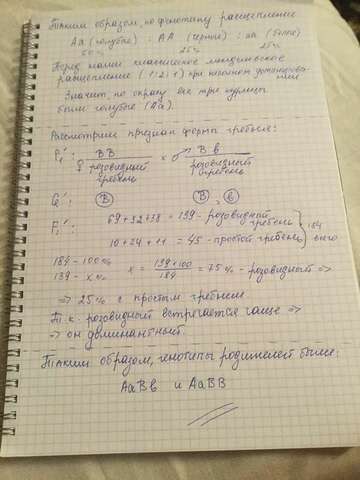 Таким образом, по фенотипу расщепление
Aa (голубые) : AA (черные) : aa (белые)
50% 25% 25%
Перед нами классическое менделевское
расщепление (1:2:1) при неполном доминирова-
нии
Значит, по окрасу все три курицы
были голубые (Aa).
Рассмотрим признак формы гребня:
P₁': BB × ♂ Bb
♀ розовидный розовидный
гребень гребень
G': B B, b
F₁': 69+32+38=139 - розовидный
гребень
10+24+11=45 - простой гребень 184
всего
184 - 100%
139 - x% x = 139*100 / 184 = 75% - розовидный =>
=> 25% с простым гребнем
Т.к. розовидный встречается чаще =>
=> он доминантный.
Таким образом, генотипы родителей были:
AaBb и AaBB